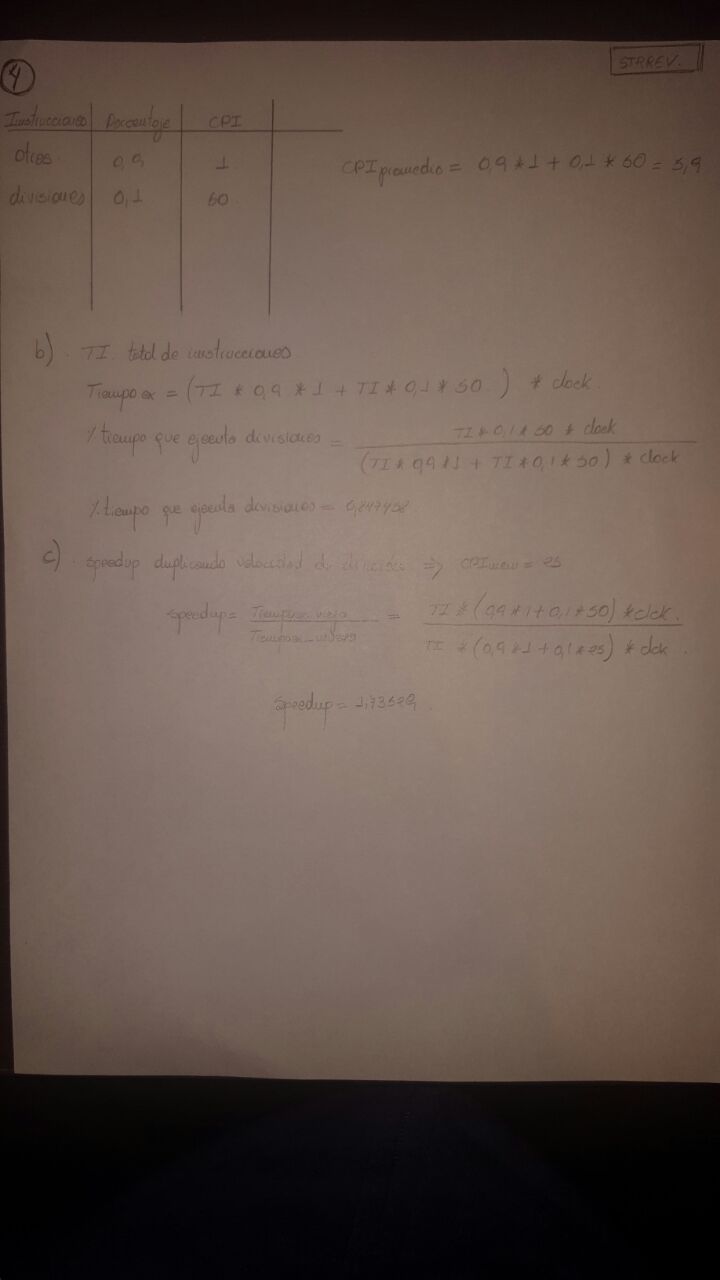 STRREV.
4
Instrucciones Porcentaje CPI
otros 0,9 1
divisiones 0,1 50
CPI promedio = 0,9 * 1 + 0,1 * 50 = 5,9
b) . TI. total de instrucciones
Tiempo ex = (TI * 0,9 * 1 + TI * 0,1 * 50 ) * clock.
% tiempo que ejecuta divisiones = TI * 0,1 * 50 * clock
(TI * 0,9 * 1 + TI * 0,1 * 50) * clock
% tiempo que ejecuta divisiones = 0,847458
c) . speedup duplicando velocidad de división => CPI new = 25
speedup = Tiempoex_viejo = TI * (0,9 * 1 + 0,1 * 50) * clck.
Tiempoex_nuevo TI * (0,9 * 1 + 0,1 * 25) * clck .
speedup = 1,73529.